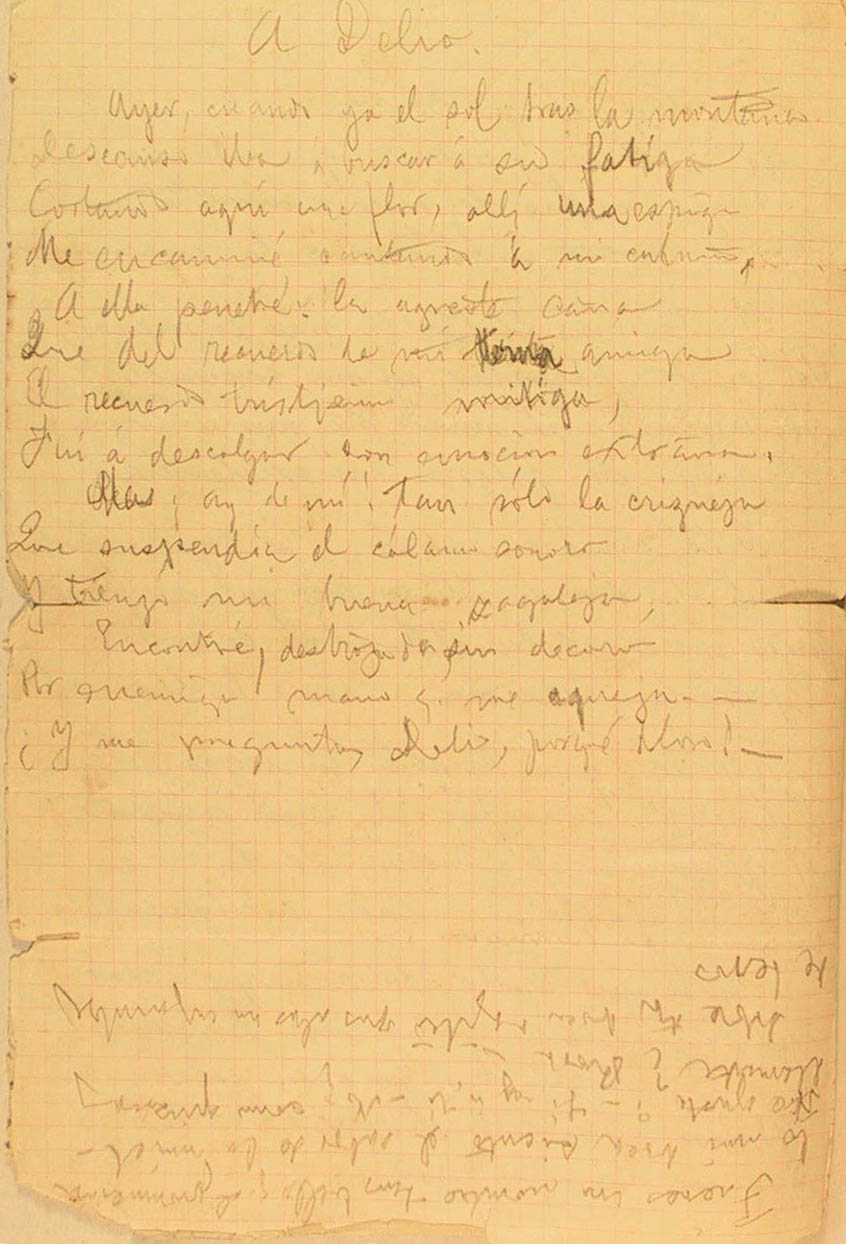 A Delio.
Ayer, cuando ya el sol tras la montaña
Descanso iba á buscar á su fatiga
Cortando aquí una flor, allí una espiga
Me encaminé cantando á mi cabaña,
A ella penetré: la agreste caña
Que del recuerdo de mi tierna amiga
El recuerdo tristísimo mitiga,
Fuí á descolgar con emocion extraña.
Mas ¡ay de mí! tan sólo la crizneja
Que suspendía el cálamo sonoro
Y trenzó mi buena zagaleja,
Encontré, destrozada sin decoro
Por enemiga mano q. me aqueja--
¡Y me preguntas, Delio, porqué lloro!—
Tienes un nombre tan bello, al pronunciar
lo mi boca siente el sabor de la miel-